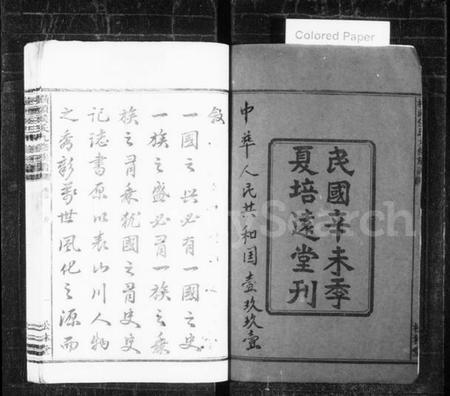 Colored Paper
民國辛未季
夏培遠堂刊
中華人民共和国壹玖玖壹
敘
一國之興必有一國之史
一族之盛必有一族之乘
族之有乘犹國之有史史
記誌書原以表山川人物
之秀彰萬世風化之源而